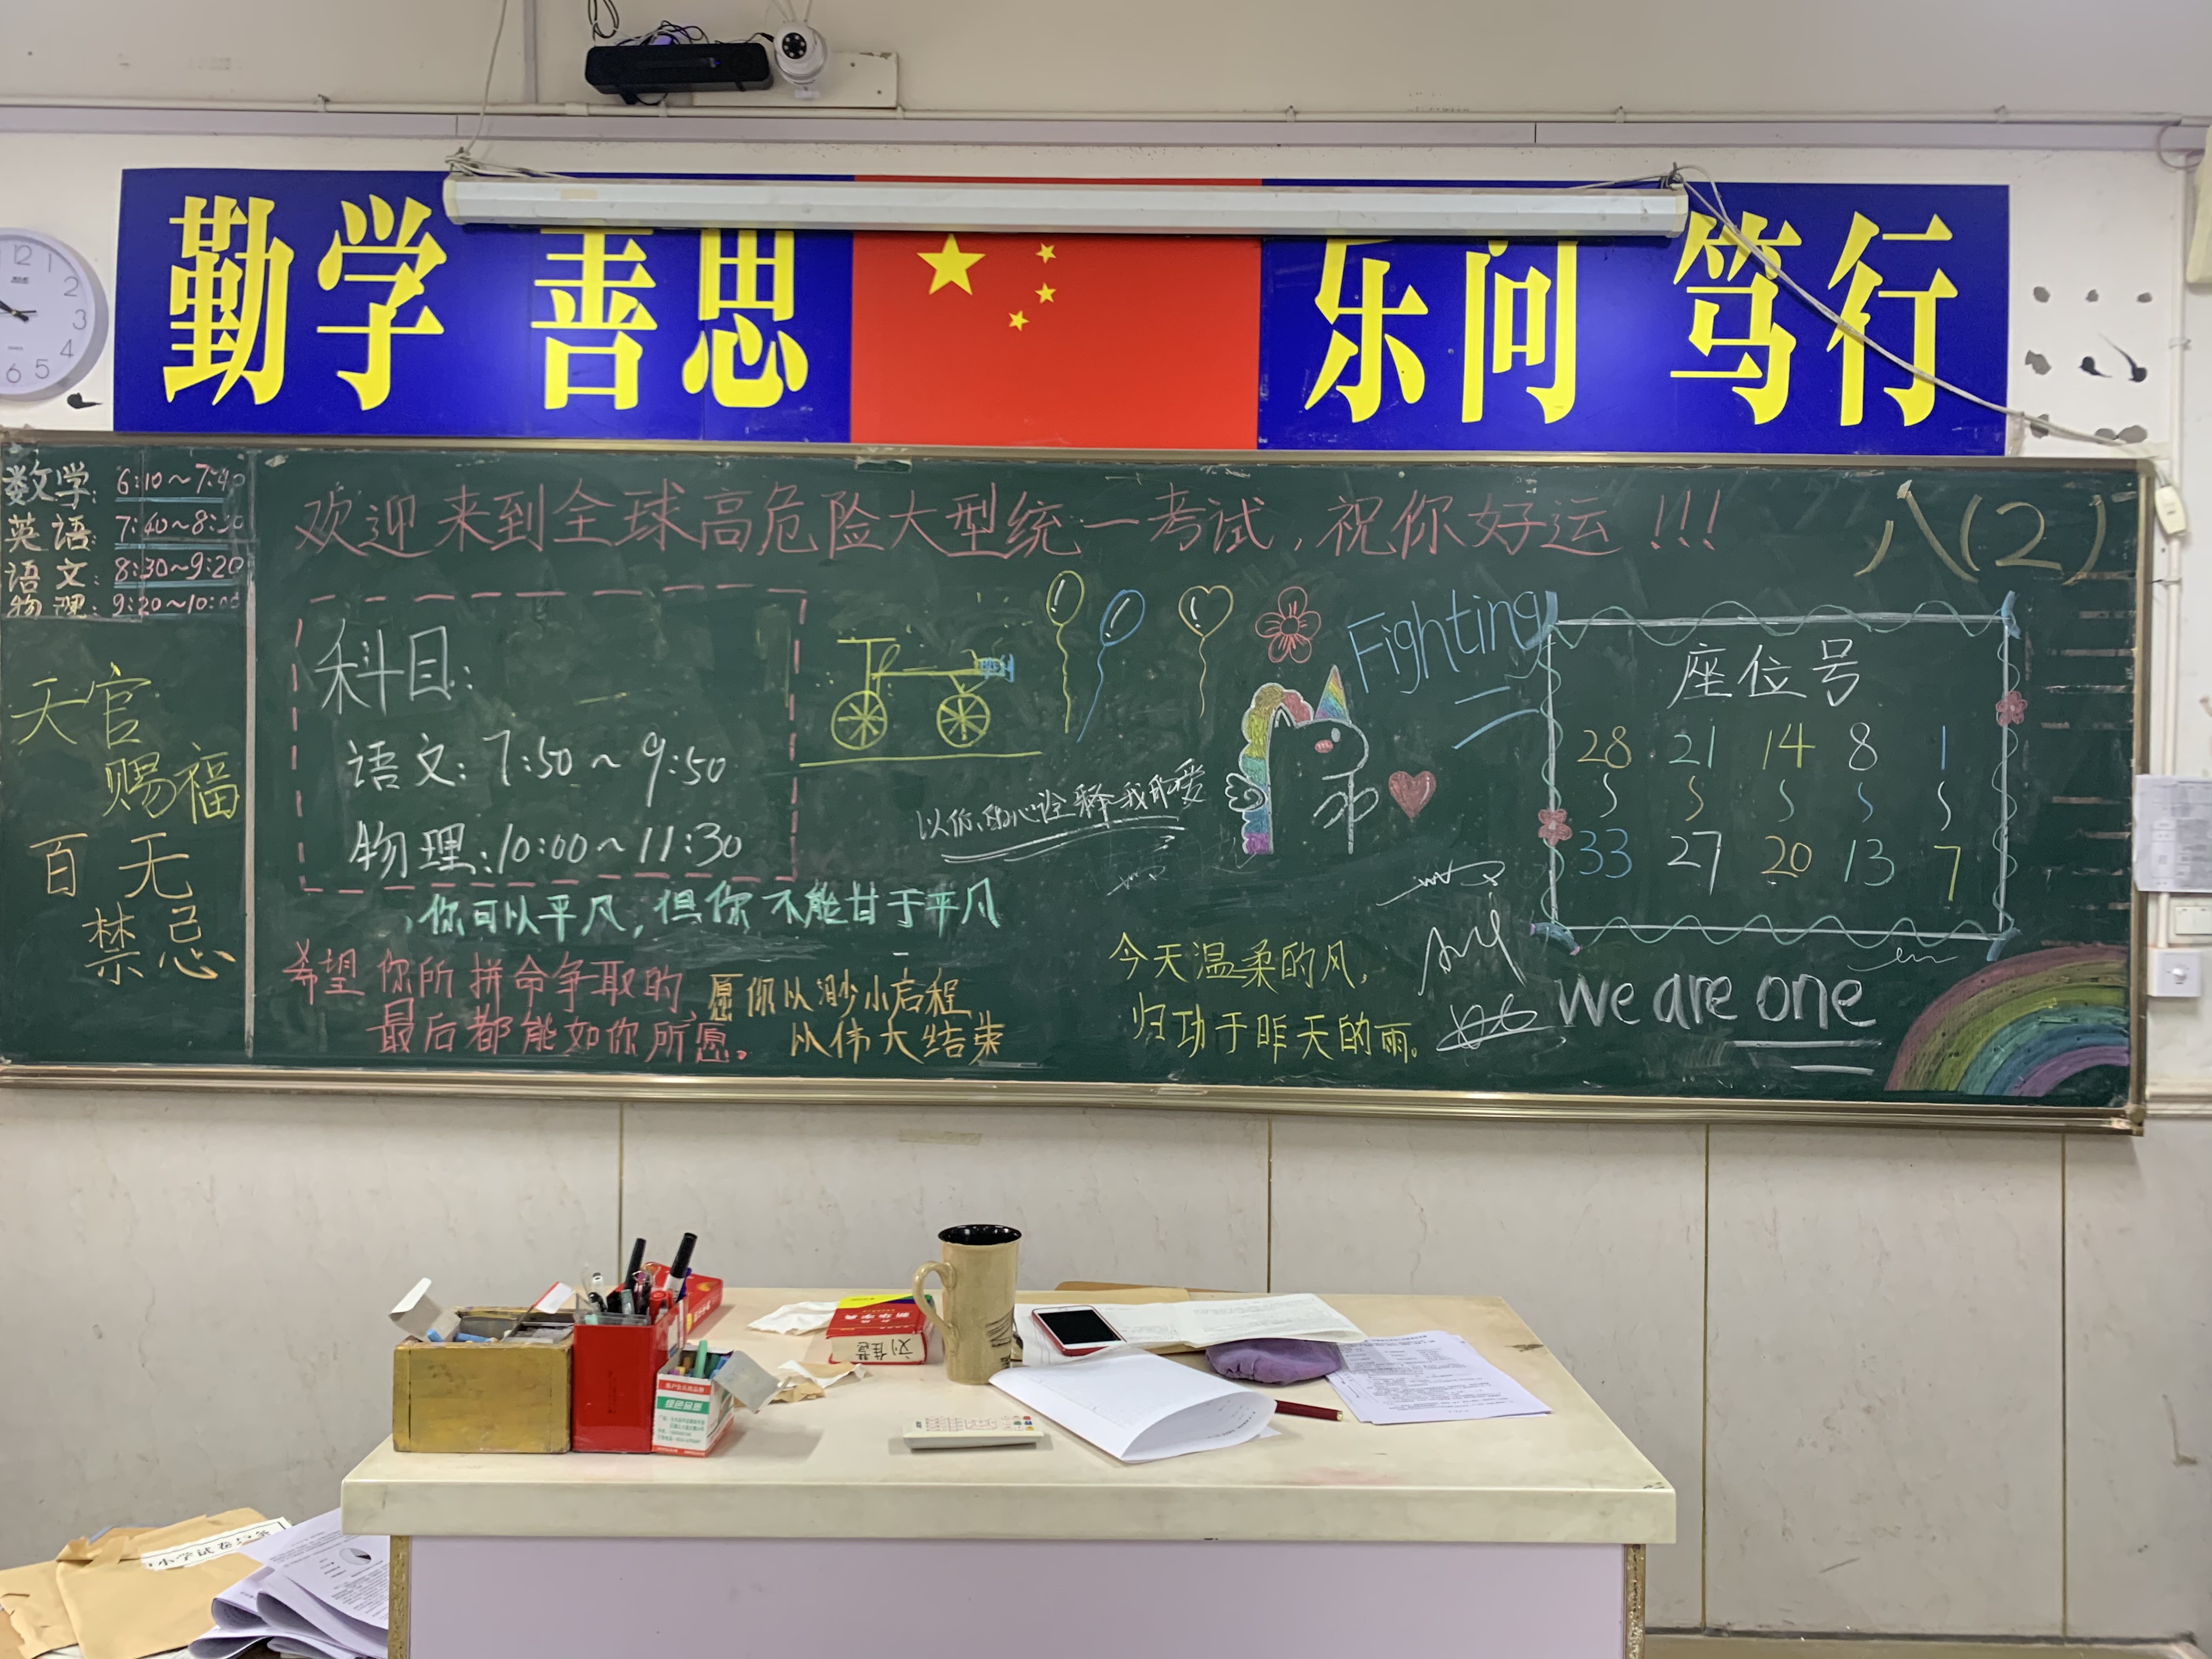 勤学 善思 乐问 笃行
12 1 2 3 4 5 6
数学: 6:10~7:40
英语: 7:40~8:30
语文: 8:30~9:20
物理: 9:20~10:00
天官
赐福
百无
禁忌
欢迎来到全球高危险大型统一考试,祝你好运!!!
八(2)
科目:
语文: 7:50~9:50
物理: 10:00~11:30
Fighting
以你的心诠释我的爱
座位号
28 21 14 8 1
33 27 20 13 7
你可以平凡,但你不能甘于平凡
希望你所拼命争取的,
最后都能如你所愿。
愿你以渺小启程
以伟大结束
今天温柔的风,
归功于昨天的雨。
We are one
刘佳慧
小学试卷